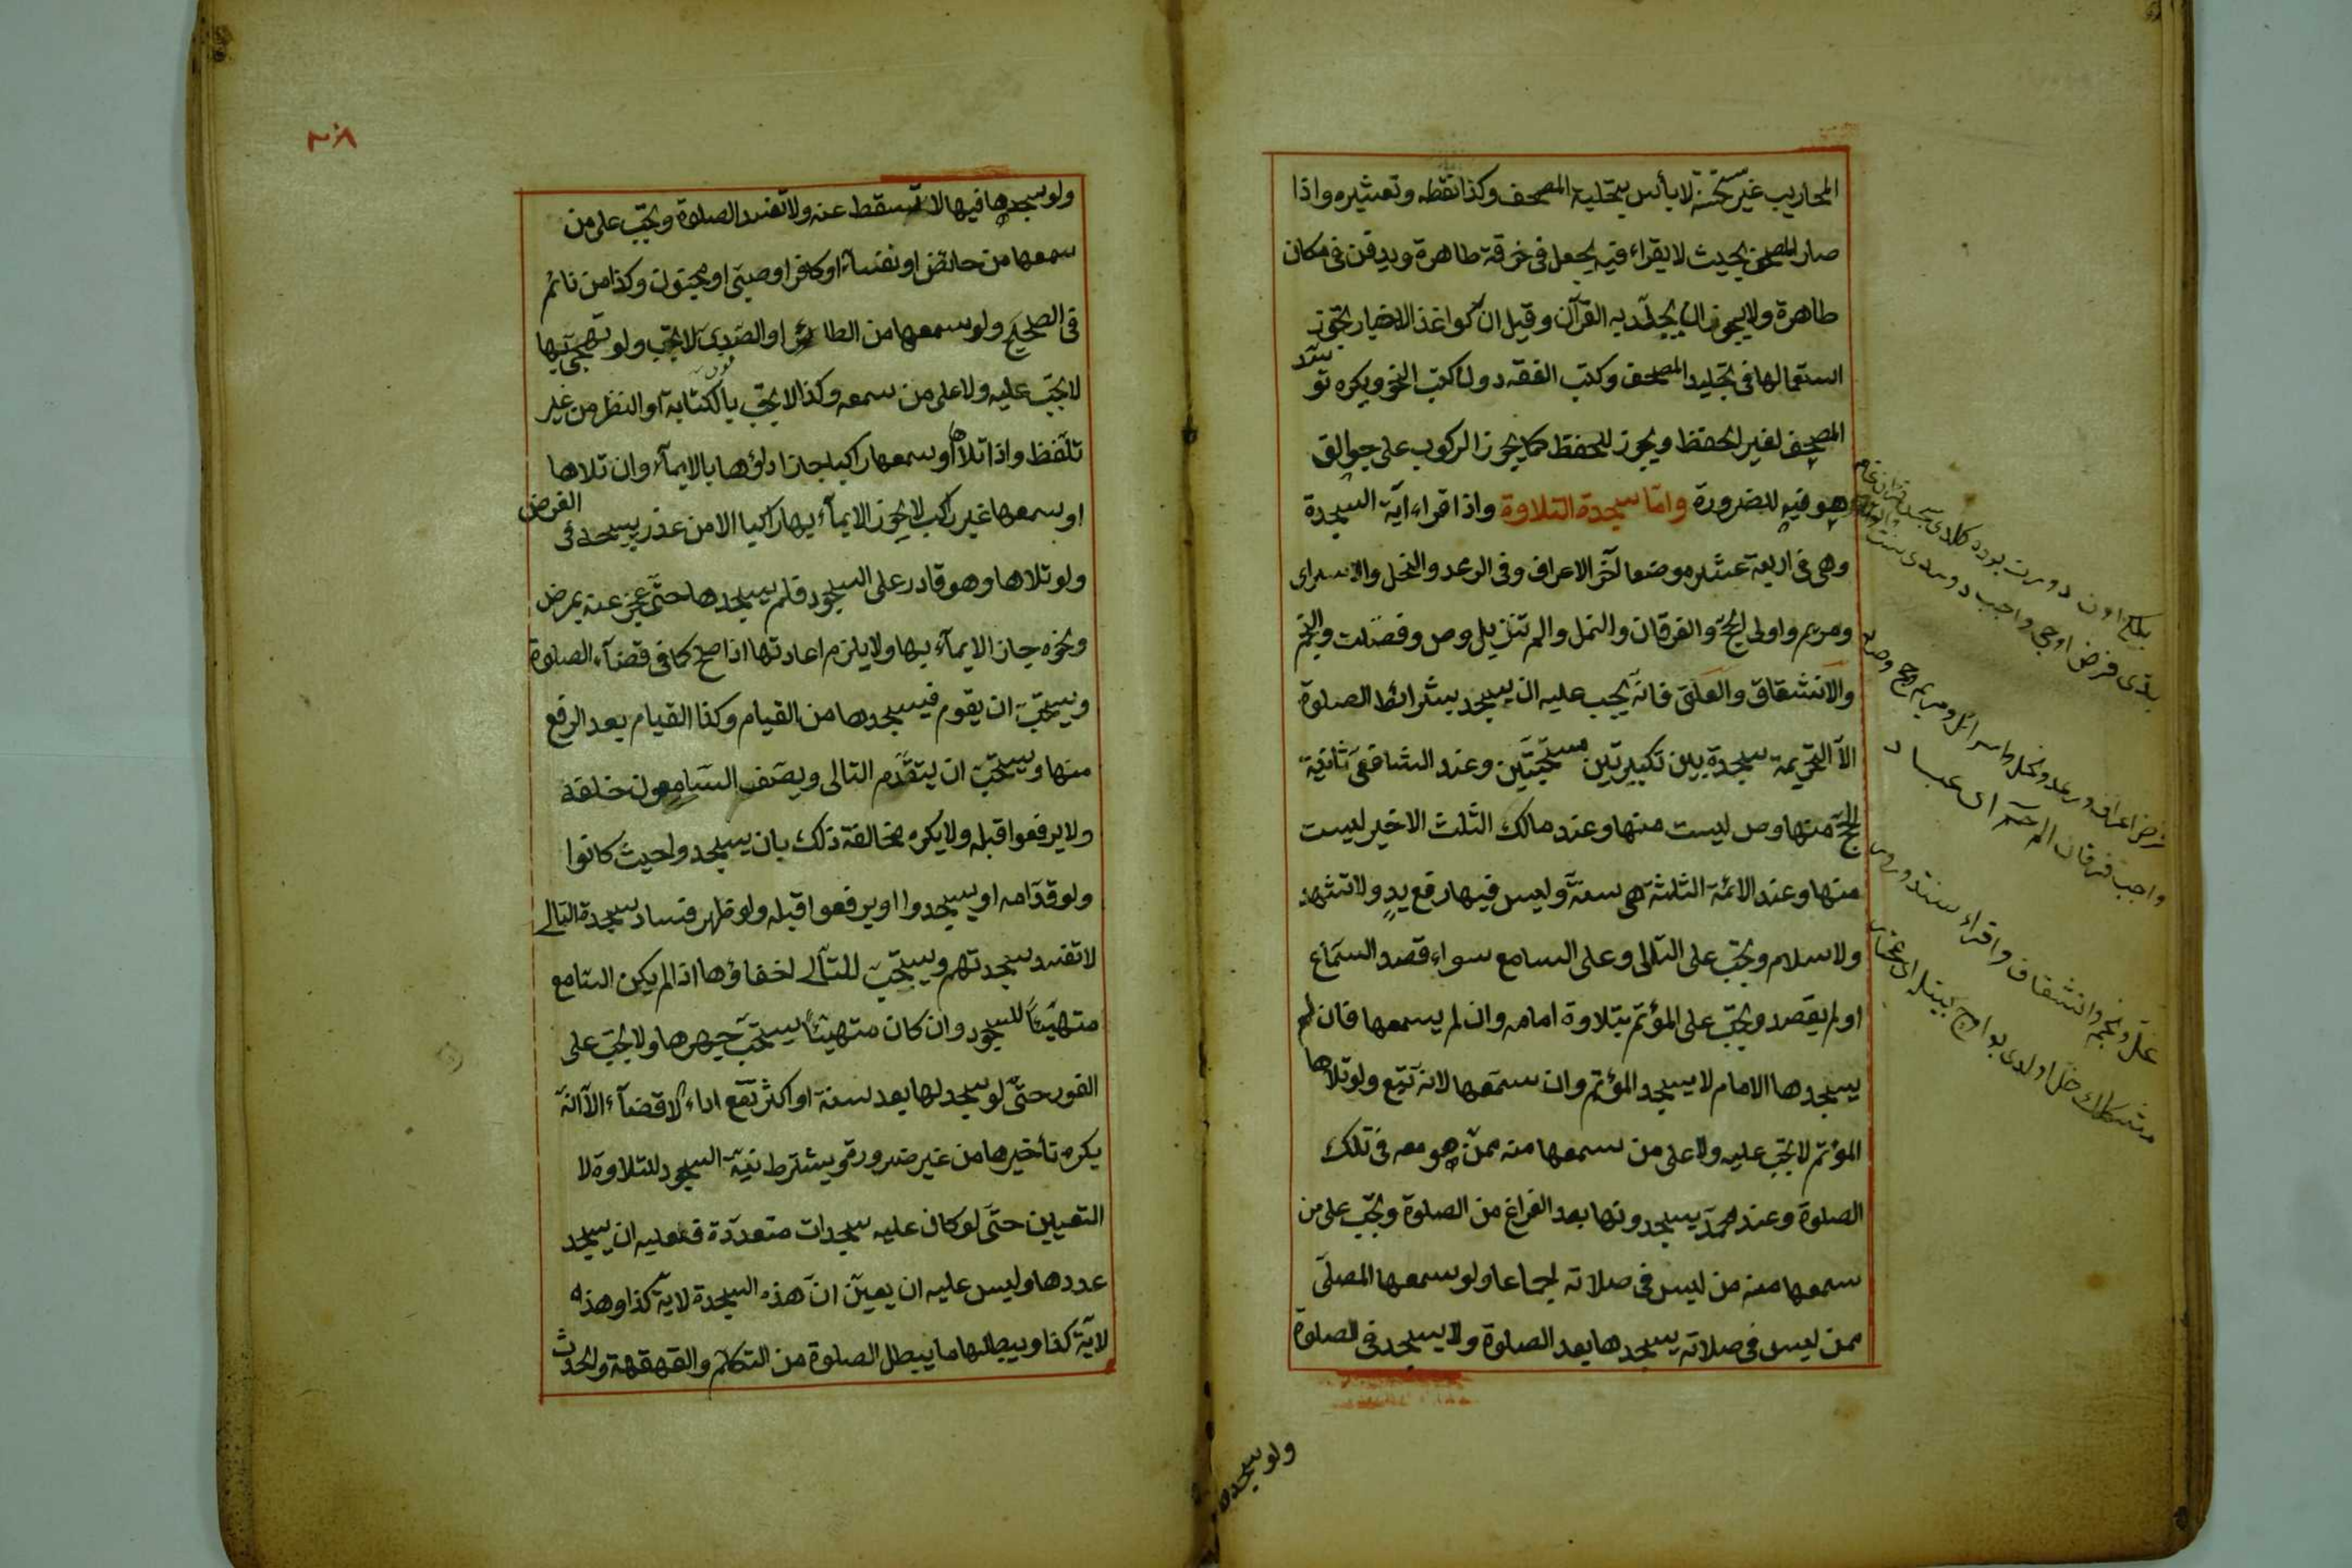 المحاريب غير مستحسنة لا بأس بتحلية المصحف وكذا نقطه وتعشيره واذا
صار المصحف بحيث لا يقراء فيه يجعل فى خرقة طاهرة ويدفن فى مكان
طاهرة ولا يجوز ان يجلّد به القرآن وقيل انّ كواغذ الاخبار يجوز
استعمالها فى تجليد المصحف وكتب الفقه دون كتب النحو ويكره توسّد
المصحف لغير الحفظ ويجوز للحفظ كما يجوز الركوب على جوالق
هو فيه للضرورة وامّا سجدة التلاوة واذا قراء اية السجدة
وهى فى اربعة عشر موضعا آخر الاعراف وفى الرعد والنحل والاسراى
ومريم واولى الحجّ والفرقان والنمل والم تنزيل وص وفصّلت والنجم
والانشقاق والعلق فانّه يجب عليه ان يسجد بشرائط الصلوة
الاّ التحريمة سجدة بين تكبيرتين مستحبّتين وعند الشافعى ثانية
الحجّ منها وص ليست منها وعند مالك الثلث الاخير ليست
منها وعند الائمة الثلثة هى سنة وليس فيها رفع يد ولا تشهد
ولا سلام ويجب على التالى وعلى السامع سواء قصد السماع
او لم يقصد ويجب على المؤتم بتلاوة امامه وان لم يسمعها فان لم
يسجدها الامام لا يسجد المؤتم وان سمعها لانه تبع ولو تلاها
المؤتم لا يجب عليه ولا على من سمعها منه ممن هو معه فى تلك
الصلوة وعند محمد يسجدونها بعد الفراغ من الصلوة ويجب على من
سمعها منه من ليس فى صلاته اجماعا ولو سمعها المصلّى
ممن ليس فى صلاته يسجدها بعد الصلوة ولا يسجد فى الصلوة
ولو سجدها
واجب فرقان الم حم
علق ونجم وانشقاق واقراء سنتدر
٣٠٨
ولو سجدها فيها لا تسقط عنه ولا تفسد الصلوة ويجب على من
سمعها من حائض او نفساء او كافر او صبى او مجنون وكذا من نائم
فى الصحيح ولو سمعها من الطائر او الصدى لا يجب ولو تهجّيها
لا يجب عليه ولا على من سمعه وكذا لا يجب بالكتابة او النظر من غير
تلفّظ واذا تلاها او سمعها راكبا جاز اداؤها بالايماء وان تلاها
او سمعها غير راكب لا يجوز الايماء بها راكبا الا من عذر يسجد فى الفرض
ولو تلاها وهو قادر على السجود فلم يسجدها حتّى عجز عنه بمرض
ونحوه جاز الايماء بها ولا يلزم اعادتها اذا صح كما فى قضاء الصلوة
ويستحب ان يقوم فيسجدها من القيام وكذا القيام بعد الرفع
منها ويستحب ان يتقدّم التالى ويصف السامعون خلفه
ولا يرفعوا قبله ولا يكره مخالفة ذلك بان يسجدوا حيث كانوا
ولو قدّامه او يسجدوا او يرفعوا قبله ولو ظهر فساد سجدة التالى
لا تفسد سجدتهم ويستحب للتالى اخفاؤها اذا لم يكن السامع
متهيئا للسجود وان كان متهيئا يستحب جهرها ولا يجب على
الفور حتّى لو سجد لها بعد سنة او اكثر تقع اداء لا قضاء الاّ انّه
يكره تأخيرها من غير ضرورة ويشترط نية السجود للتلاوة لا
التعيين حتّى لو كان عليه سجدات متعددة فعليه ان يسجد
عددها وليس عليه ان يعيّن انّ هذه السجدة لاية كذا وهذه
لاية كذا ويبطلها ما يبطل الصلوة من التكلم والقهقهة والحدث